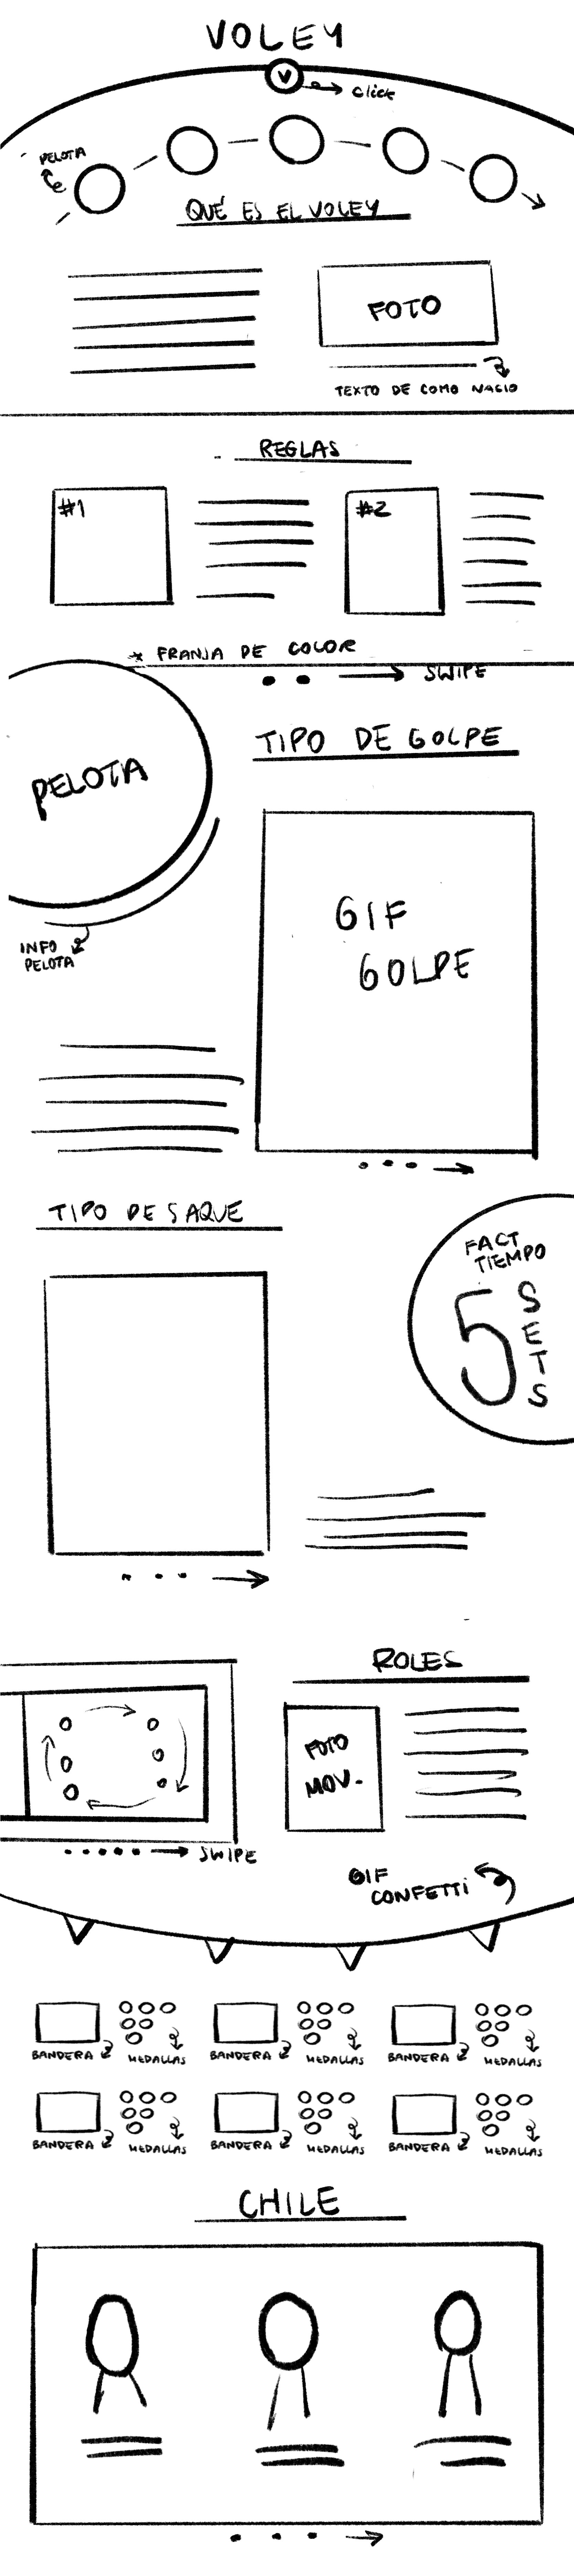 VOLEY
V
click
PELOTA
QUÉ ES EL VOLEY
FOTO
TEXTO DE COMO NACIO
REGLAS
#1
#2
* FRANJA DE COLOR
SWIPE
TIPO DE GOLPE
PELOTA
GIF
GOLPE
INFO
PELOTA
TIPO DE SAQUE
FACT
TIEMPO
5
SETS
ROLES
FOTO
MOV.
SWIPE
GIF
CONFETTI
BANDERA MEDALLAS BANDERA MEDALLAS BANDERA MEDALLAS
BANDERA MEDALLAS BANDERA MEDALLAS BANDERA MEDALLAS
CHILE